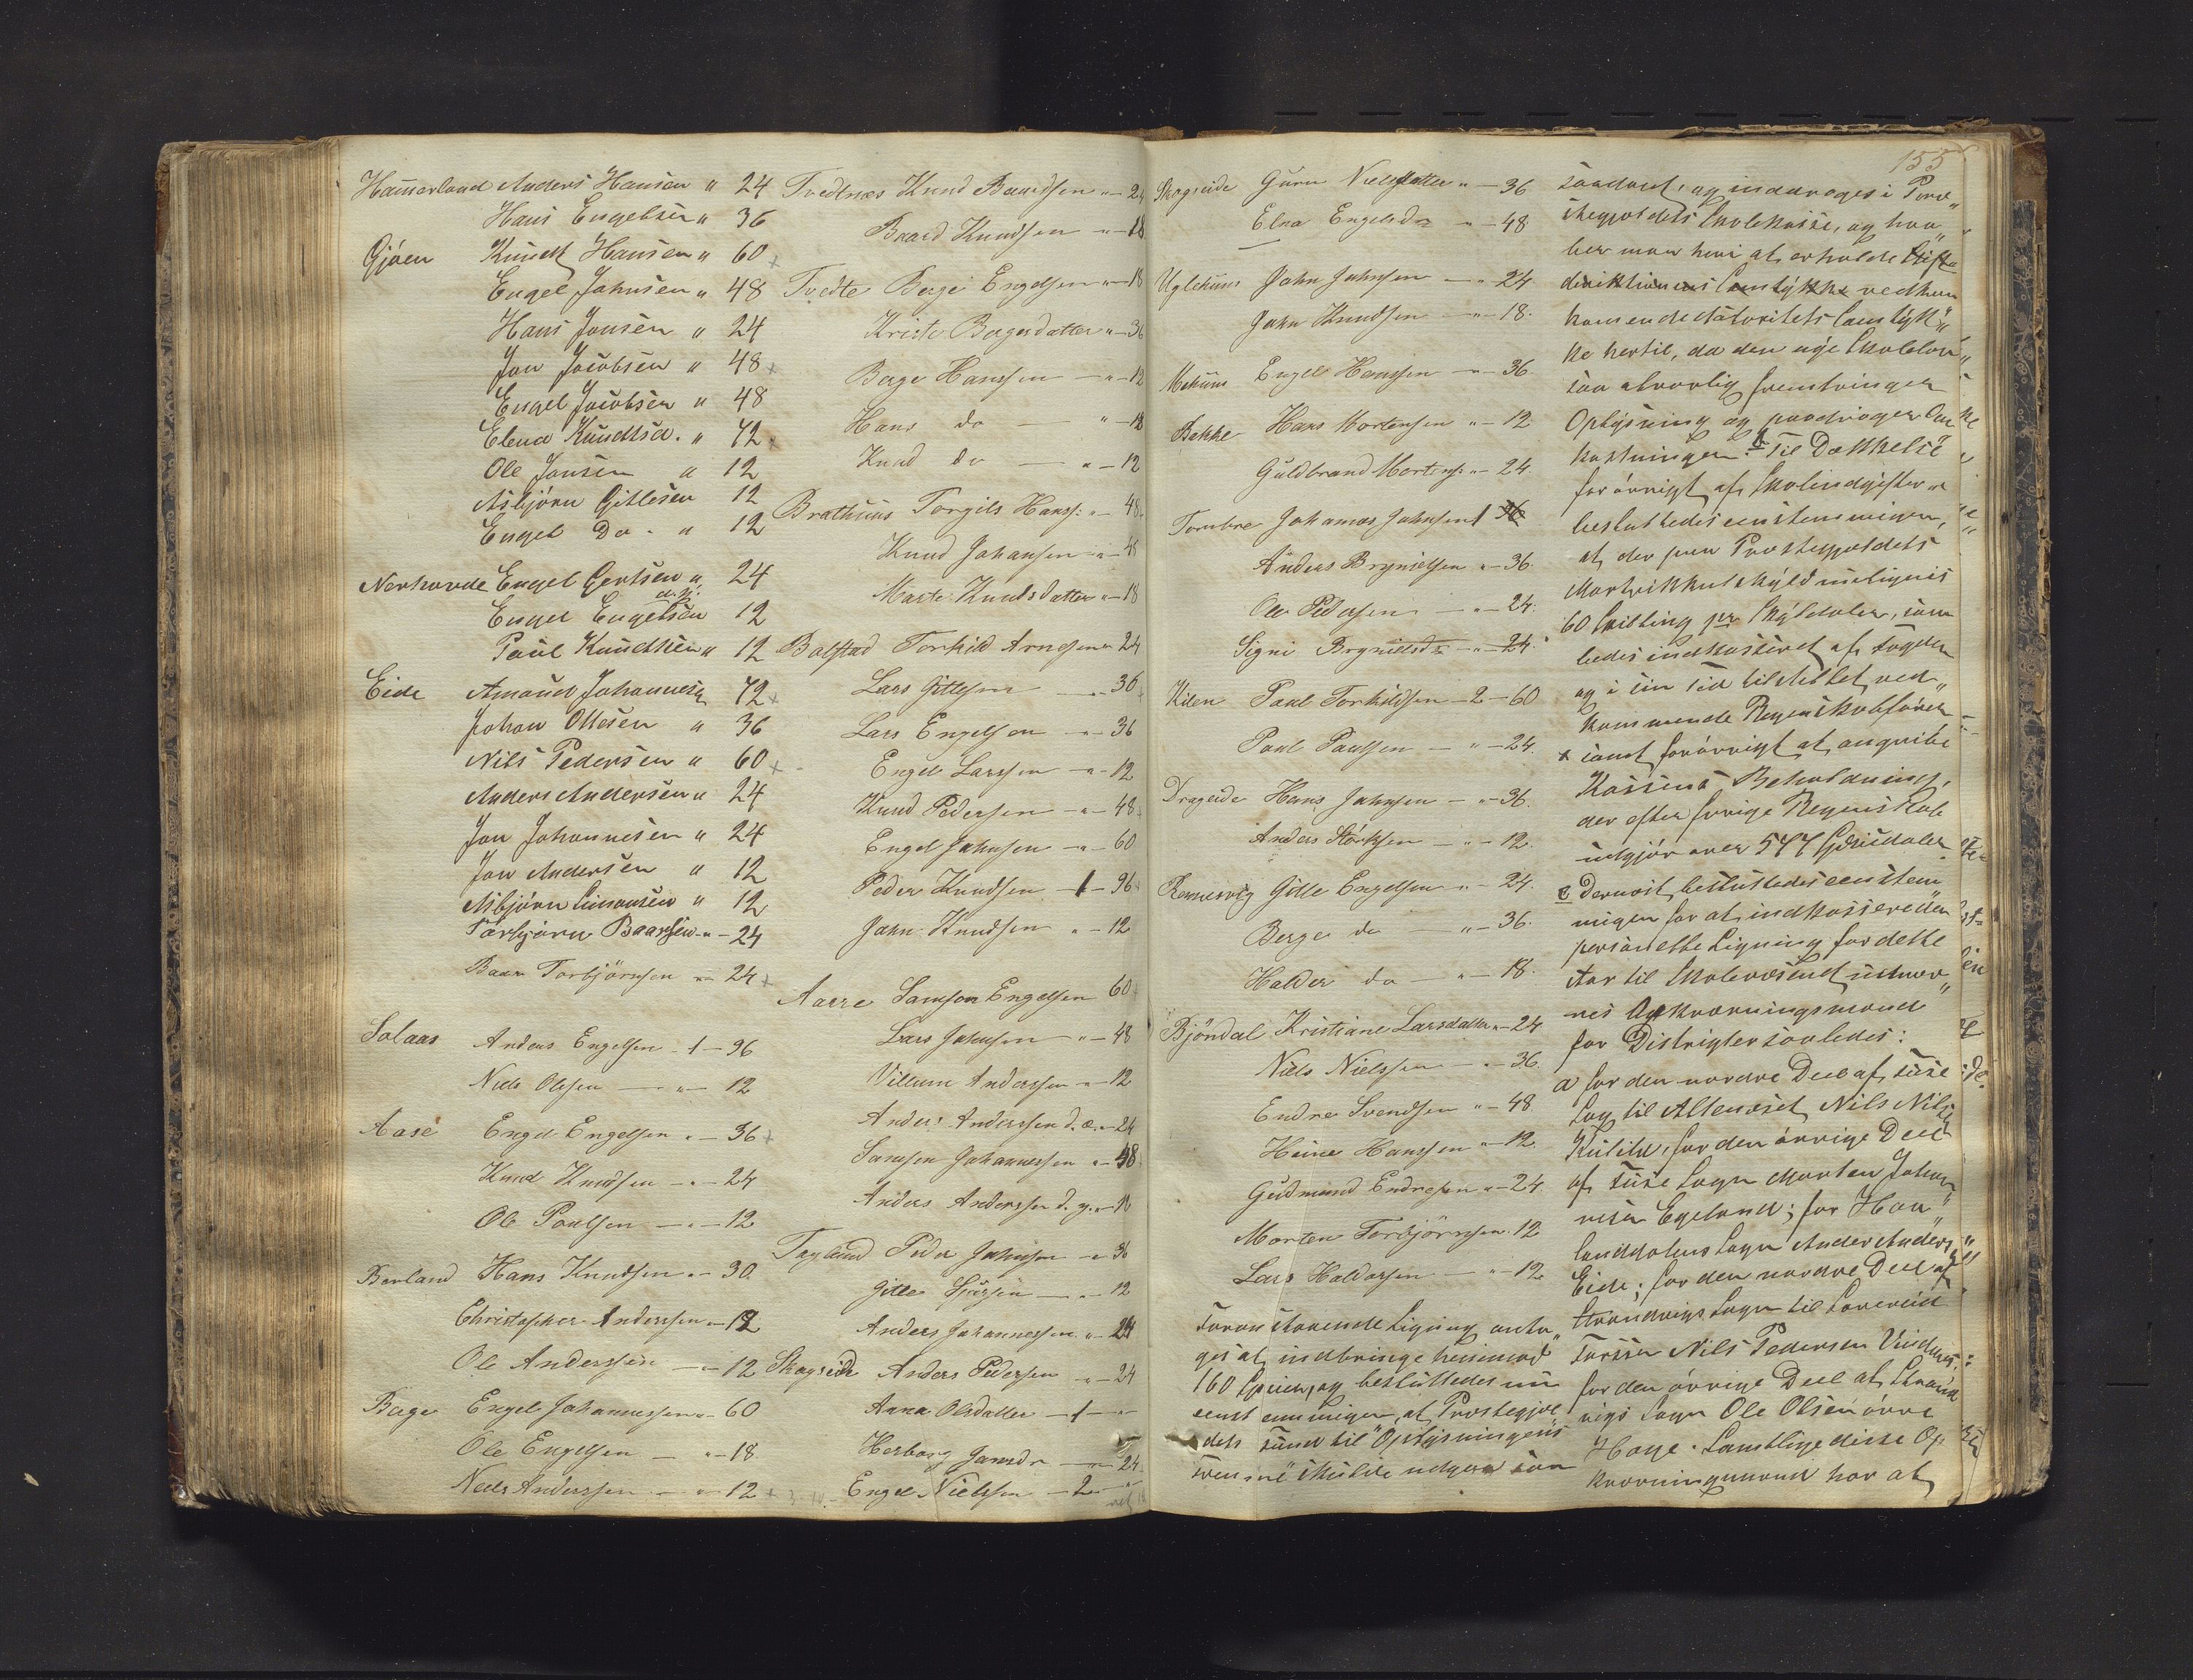 Hammerland Anders Hansen " 24
Hans Engelsen " 36
Gjøen Knudt Hansen " 60
Engel Johnsen " 48
Hans Jansen " 24
Jon Jacobsen " 48
Engel Jacobsen " 48
Elena Knudtsd. " 72
Ole Jansen " 12
Asbjörn Gitlesen 12
Engel Do. " 12
Engel Gertsen " 24
Engel Engelsen d.y. 12
Paul Knudtsen " 12
Eide Amund Johannesen 72
Johan Ottesen " 36
Nils Pedersen " 60
Anders Andersen " 24
Jon Johannesen " 24
Jon Andersen " 12
Asbjörn Simonsen " 12
Torbjörn Baarsen " - 24
Baar Torbjörnsen " 24
Solaas Anders Engelsen - 1 - 96
Niels Olsen — " — 12
Aase Engel Engelsen " — 36
Knud Knudsen — " — 24
Ole Paulsen — " — 12
Berland Hans Knudsen " — 30
Christopher Anderssen " — 12
Ole Anderssen — " — 12
Berge Engel Johannessen " — 60
Ole Engelsen — " — 18.
Niels Anderssen — " — 12
Tvedtnæs Knud Baardsen " — 24
Baard Knudsen " — 18
Tvedte Berge Engelsen " — 18
Kriste Bergesdatter " — 36
Berge Hanssen — " — 12
Hans do — " — 18
Knud do — " — 12
Brathuus Torgils Hanss: " — 48.
Knud Johansen " — 48
Marte Knudsdatter " — 18
Bolstad Torkild Arnesen " 24
Lars Gitlesen — " — 36
Lars Engelsen — " — 36
Engel Larssen — " — 12
Knud Pedersen — " — 48
Engel Johnsen — " — 60
Peder Knudsen — 1 — 96
John Knudsen " — 12
Aarre Samson Engelsen 60
Lars Johnsen " — 48
Villum Anderssen " — 12
Anders Anderssen d. æ. " — 24
Samson Johannessen " — 48
Anders Anderssen d. y. " — 18
Tagland Peder Johnsen — " 36
Gitle — " — 12
Anders Johannessen " — 24
Skogseide Anders Pedersen " — 24
Anna Olsdatter — 1 — "
Herborg — " — 24.
Engel Nielsen — 2 — "
155
Skogseide Guru Nielsdatter " — 36
Elna Engelsdr " — 48
Uglehuus John Johnsen — " 24
John Knudsen — " — 18.
Engel Hanssen — " — 36
Bekke Hans Mortensen " — 12
Guldbrand Mortens: " — 24.
Johannes Johnsen 1 36
Anders Brynielsen " — 36.
Ole Pedersen — " — 24.
Signi Brynielsdr — " — 24.
Kilen Paul Torkildsen — 2 — 60
Paul Paulsen — " — 24.
Drageide Hans Johnsen — " — 36.
Anders — " — 12.
Rennesvig Gitle Engelsen " — 24.
Berge do — " — 36.
Haldor do — " — 18.
Bjöndal Kristiane Larsdatter " — 24
Niels Nielssen — " — 36
Endre Svendsen " — 48
Heine Hanssen " — 12.
Gudmund Endresen " — 24.
Morten Torbjörnsen 12
Lars Haldorsen — " — 12
Foranstaaende Ligning anta„
ges at indbringe henimod
160 Spcier, og besluttedes nu
eenstemmigen, at Præstegjæl„
dets Fund til "Oplysningens
Fremme" skulde udgaae som
saadant, og inddrages i Præ„
stegjældets Skolekasse, og haa„
ber man heri at erholde Stifts
direktionens Samtykke vedkom
komende Autoritets Samtyk„
ke hertil, da den nye Skolelov
saa alvorlig fremtvinger
Oplysning og paadrager Om
kostninger. Til Dækkelse
forövrigt af Skolendgifterne
besluttedes eenstemmigen,
at der paa Præstegjældets
Martrikkulskyld udlignes
60 Skilling pr Skylddaler, som
ledes indkasseret af Fogden
og i sin Tid tilstillet ved„
kommende Regnskabsförer
samt forövrigt at angribe
Kassens Beholdning,
der efter forrige Regnskab
udgjör over 577 Speciedaler.
Dernæst besluttedes eenstem„
migen for at indkassere den
personelle Ligning for dette
Aar til Skolevæsenet udnæv„
nes Opkrævningsmænd
for Distrigter saaledes:
a for den nordre Deel af Fuse
Sogn til Altenæset Nils Nilsen
for den övrige Deel
af Fuse Sogn Morten Johan„
nesen Egeland; for Haa„
landdalens Sogn Anders Anders
Eide; for den nordre Deel af
Strandvigs Sogn til
Nils Pedersen
for den övrige Deel af Strand
vigs Sogn Ole Olsen övre
Hauge. Samtlige disse Op„
krævningsmænd har at